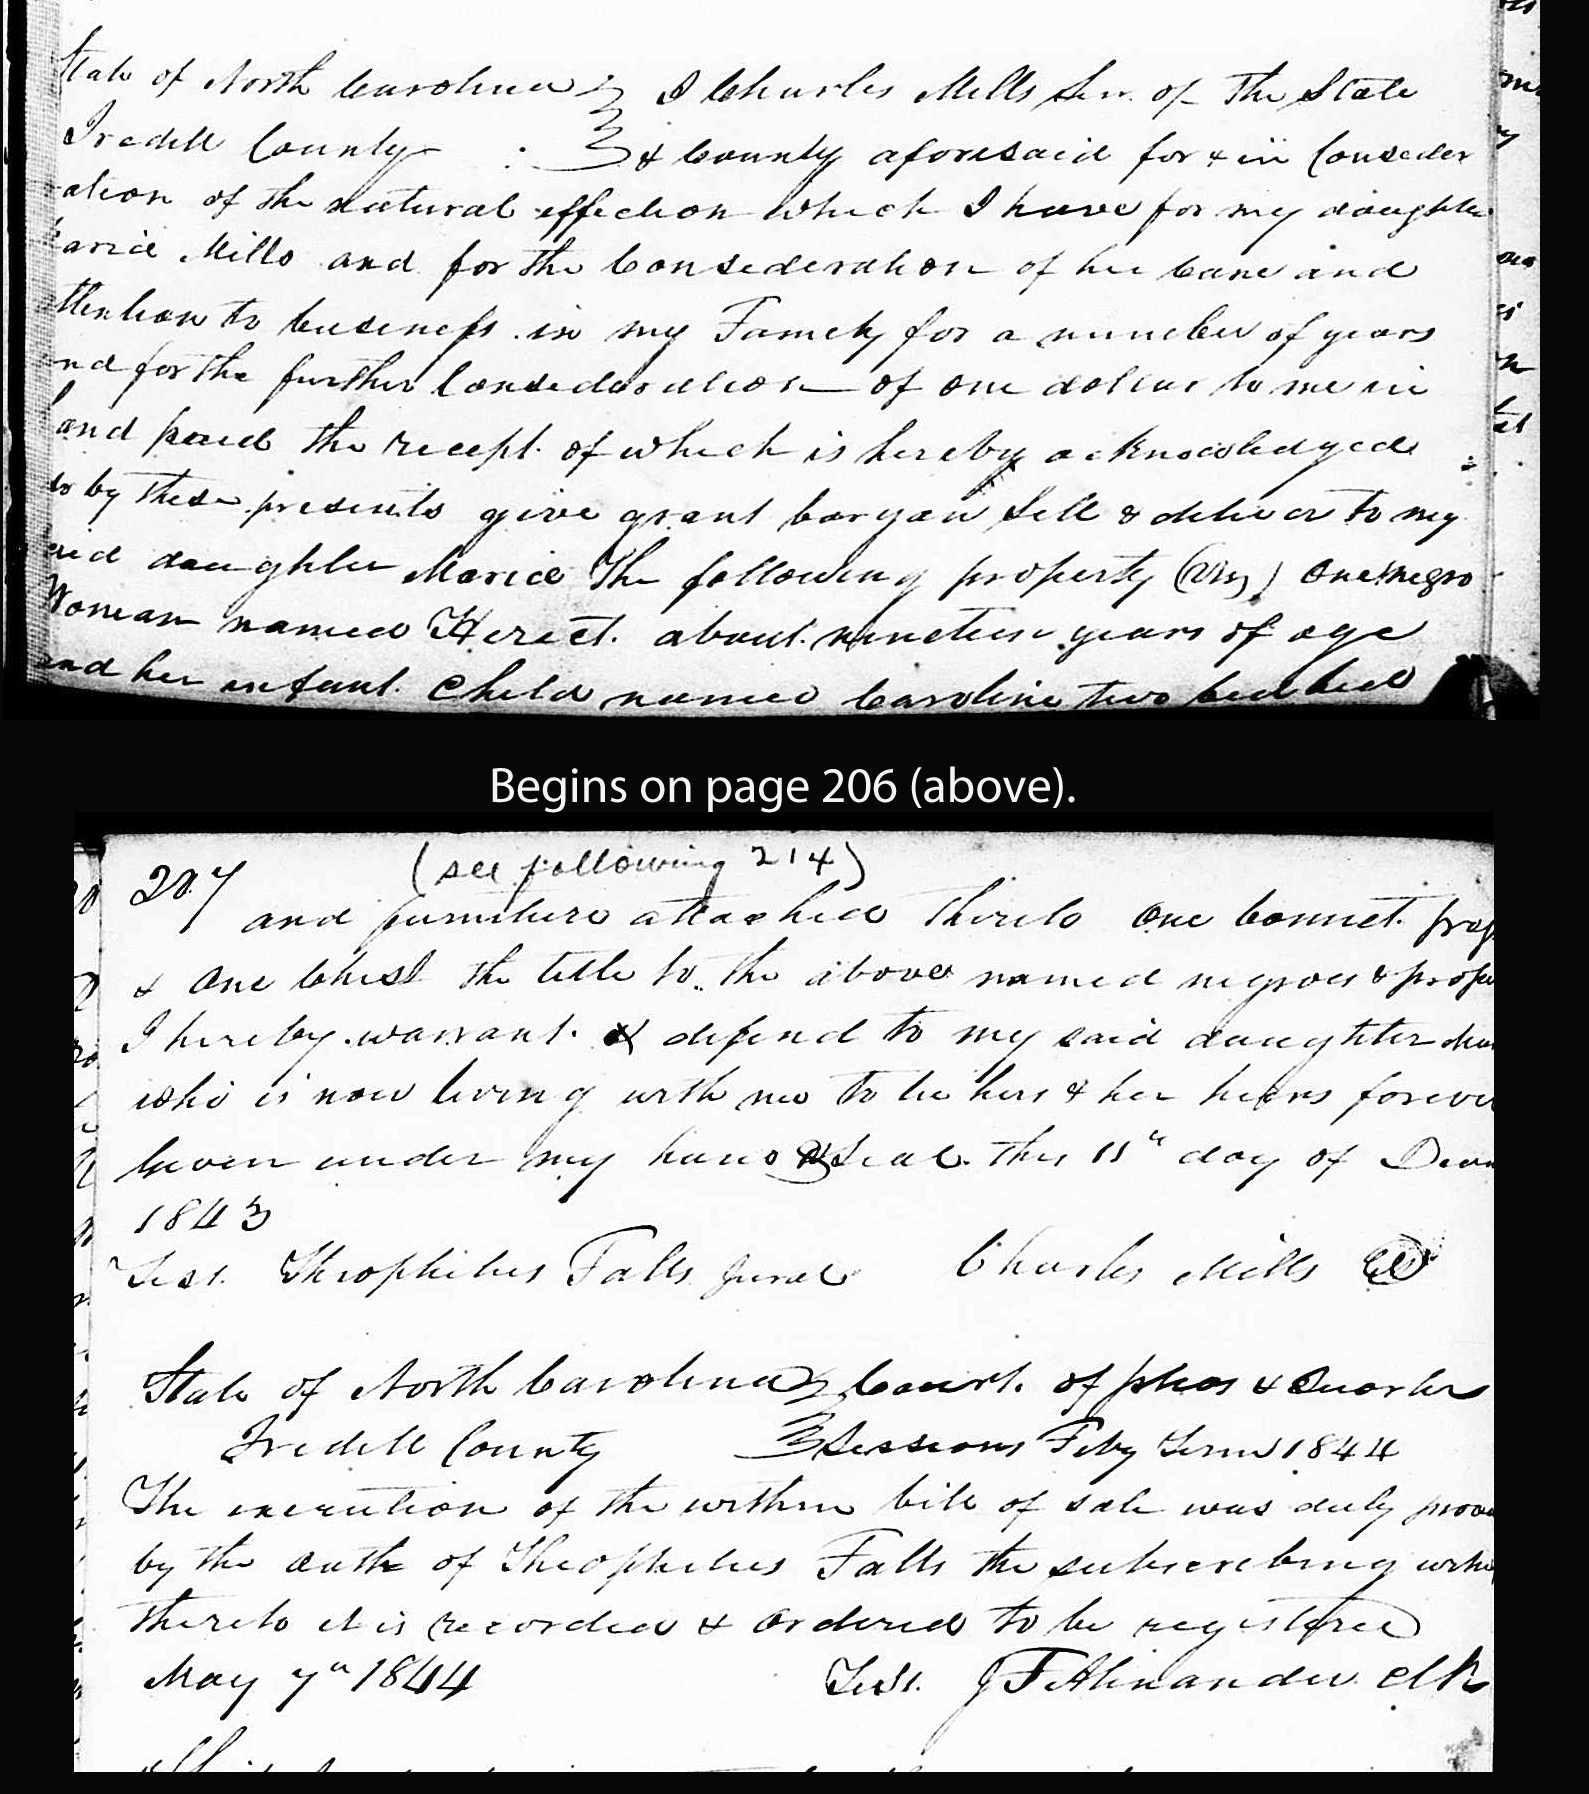 State of North Carolina } I Charles Mills Senr. of The State
Iredell County } & County aforesaid for & in Consider
ation of the natural effection which I have for my daughter
Maria Mills and for the Consideration of her care and
attention to business in my Family for a number of years
and for the further Consideration of one dollar to me in
hand paid the recept of which is hereby acknowledged
do by these presents give grant bargan Sell & deliver to my
said daughter Maria The following property (viz) One negro
Woman named Heriet. about nineteen years of age
and her infant Child named Caroline two bed
Begins on page 206 (above).
(see following 214)
207
and furniture attached thereto One bonnet. prop
& One Chest the title to the above named negroes & prope
I hereby warrant. & defend to my said daughter Mar
who is now living with me to be hers & her heirs forever
Given under my hand & Seal. this 11th day of Decem
1843
Test. Theophilus Falls Jurat Charles Mills
State of North Carolina } Court. of pleas & Quarter
Iredell County } Sessions Feby Term 1844
The execution of the within bill of sale was duly prov
by the oath of Theophilus Falls the subscribing witn
thereto it is recorded & Ordered to be registered
May 7th 1844 Test. J F Alexander Clk